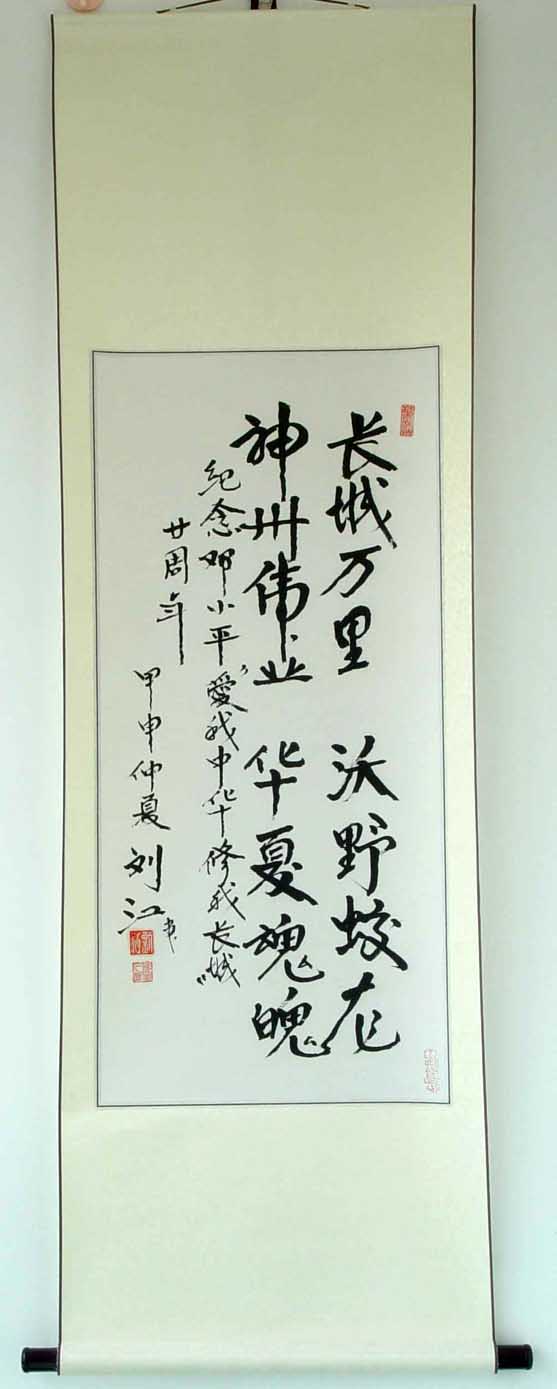 长城万里 沃野蛟龙
神州伟业 华夏魂魄
纪念邓小平“爱我中华修我长城”
廿周年
甲申仲夏 刘江书